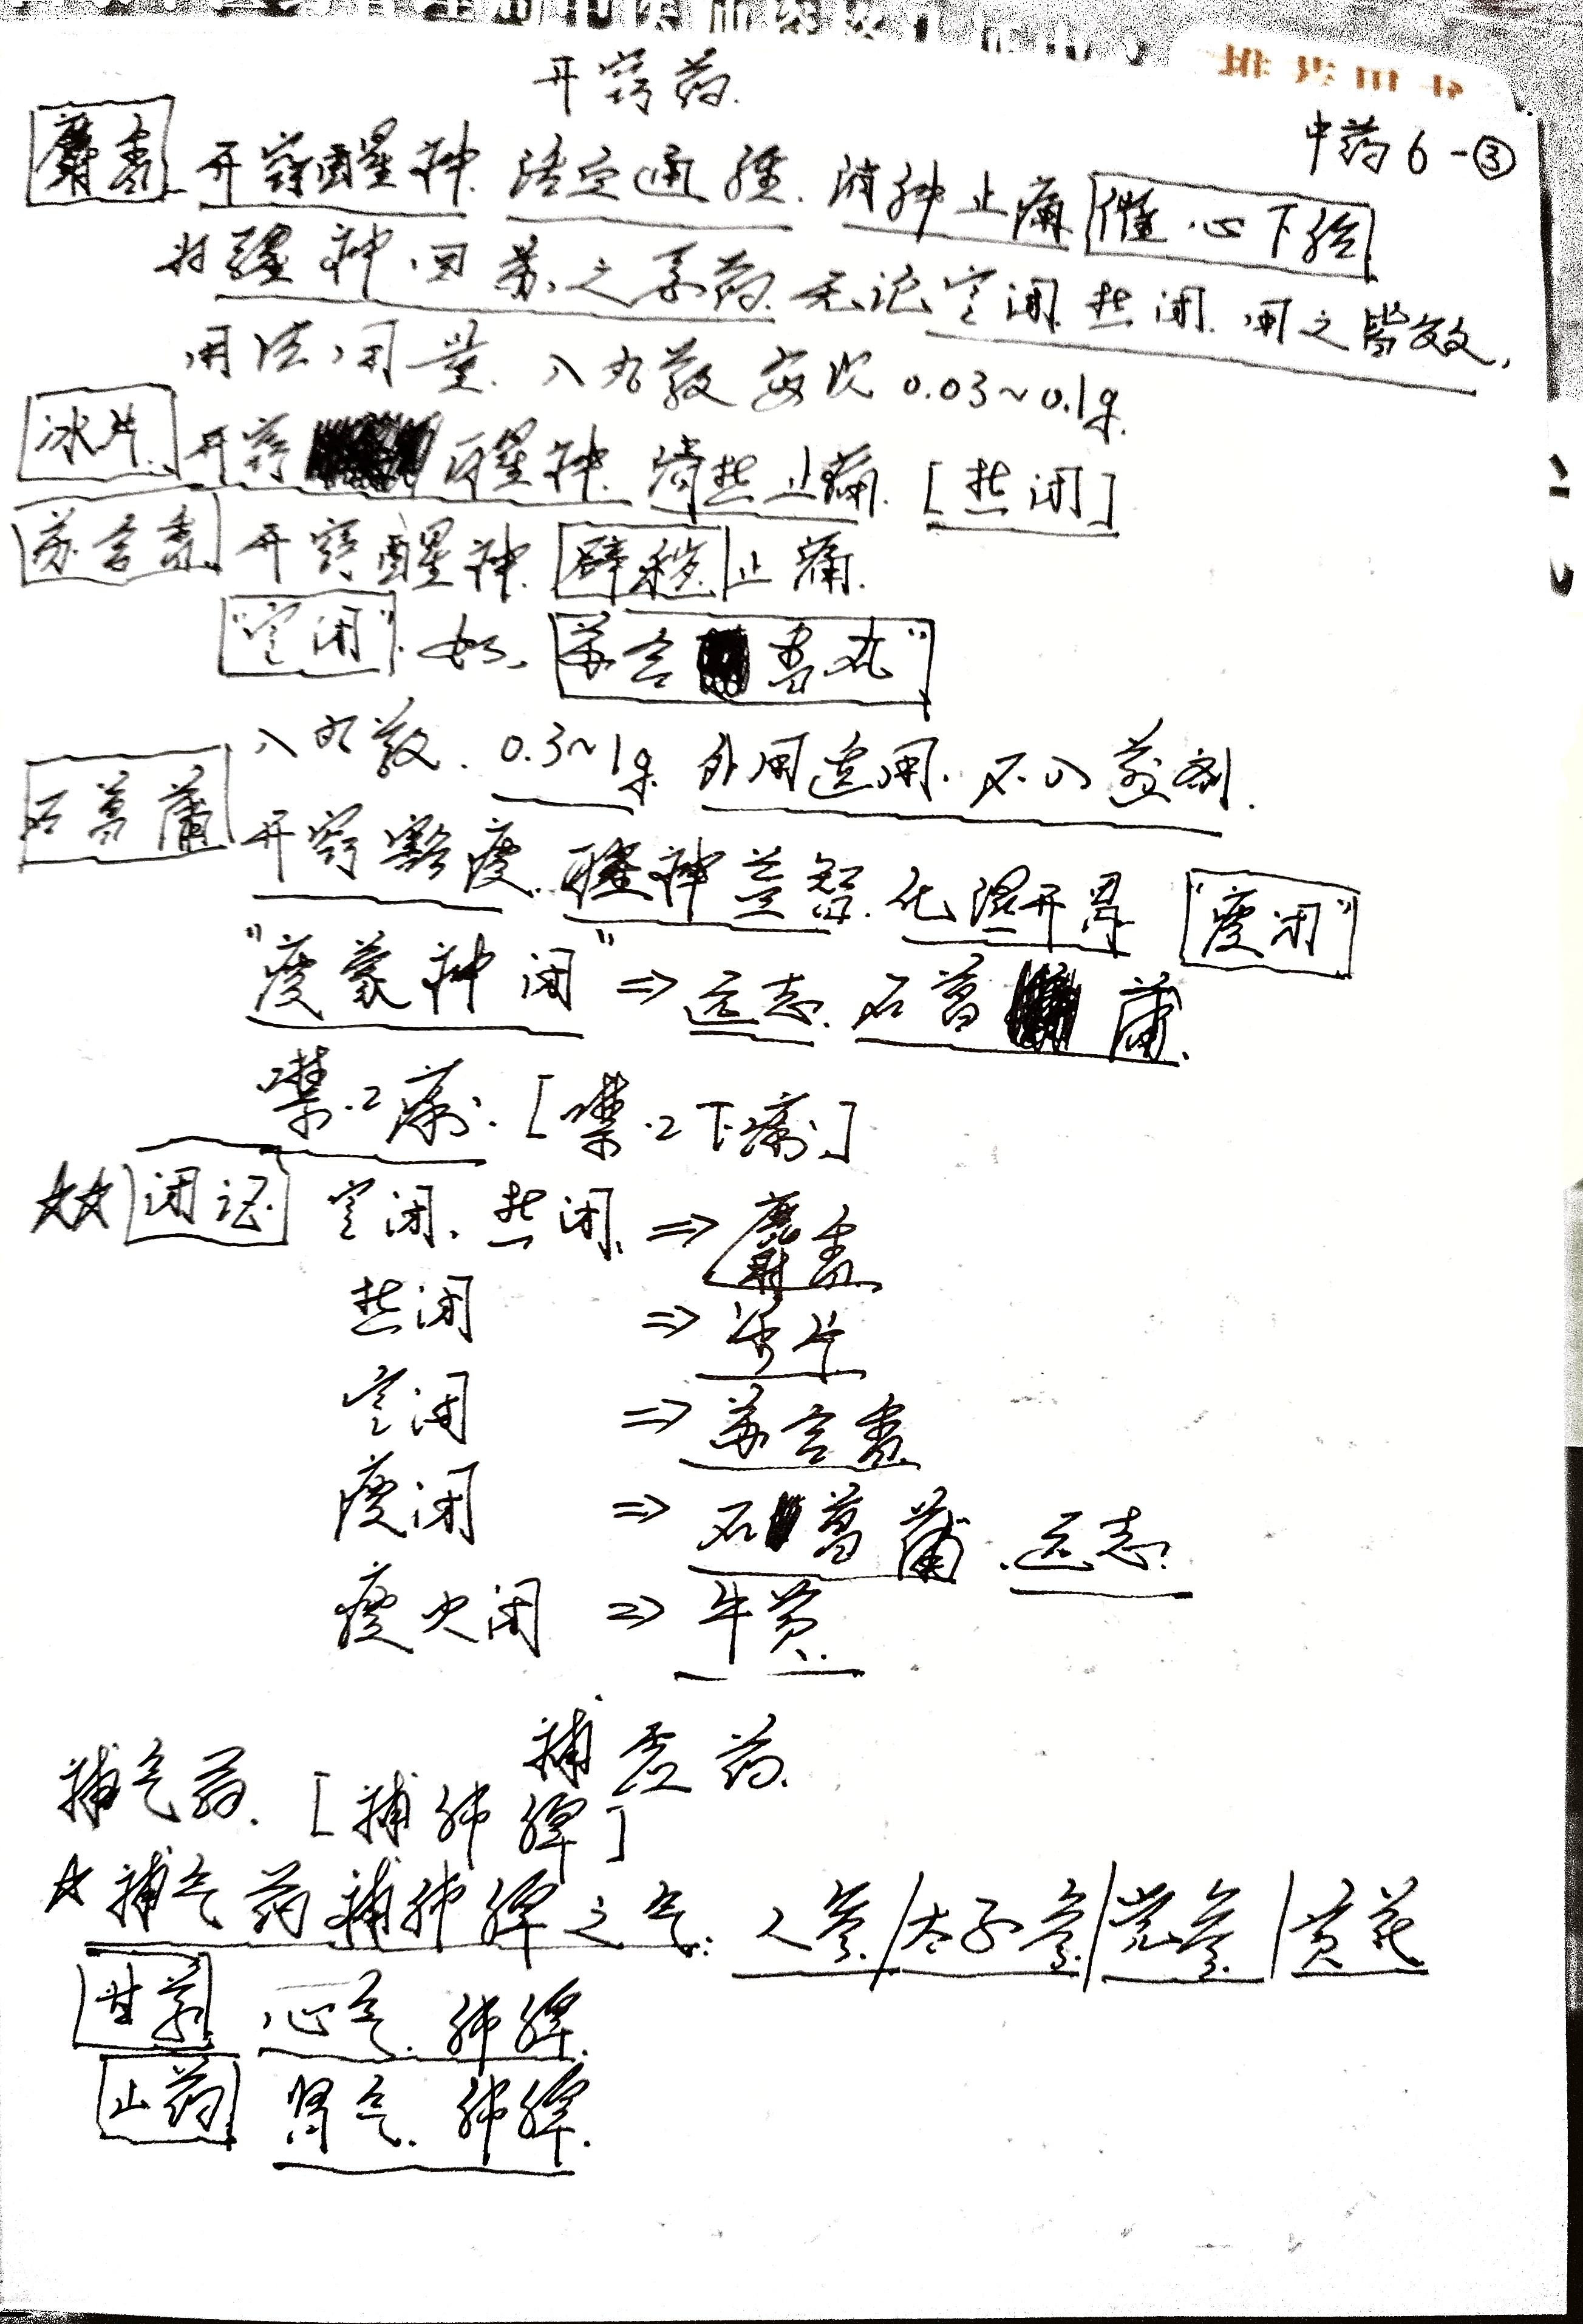 开窍药.
中药6-③
麝香 开窍醒神. 活血通经. 消肿止痛 催心下综
为醒神回苏之要药. 无论寒闭热闭.用之皆效,
用法用量. 入丸散每次0.03~0.1g.
冰片. 开窍醒神. 清热止痛. [热闭]
苏合香 开窍醒神. 辟秽 止痛.
"寒闭". 如, 苏合香丸"
入丸散. 0.3~1g. 外用适用. 不入煎剂.
石菖蒲 开窍豁痰. 醒神益智. 化湿开胃 "痰闭"
"痰蒙神闭" ⇒ 远志. 石菖蒲.
噤口痢. [噤口下痢]
☆☆ 闭证. 寒闭. 热闭. ⇒ 麝香
热闭 ⇒ 冰片
寒闭 ⇒ 苏合香
痰闭 ⇒ 石菖蒲.远志.
痰火闭 ⇒ 牛黄.
补虚药.
补气药. [补肺脾]
☆补气药补肺脾之气: 人参/太子参/党参/黄芪
甘草 心气. 肺脾.
山药 肾气. 肺脾.